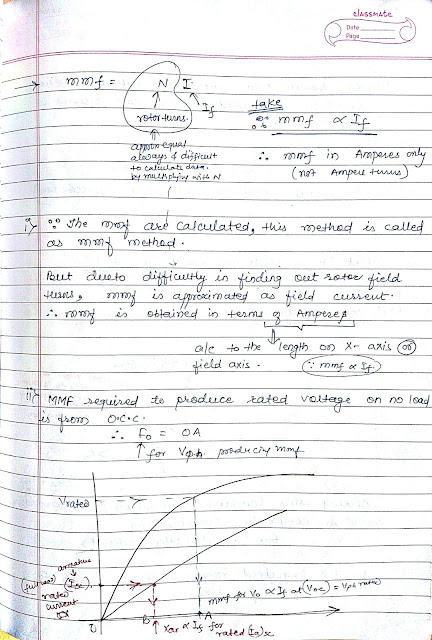 classmate
Date
Page
→ mmf = N I
I_f
rotor turns.
approx equal
always & difficult
to calculate data.
by multiplying with N
take
∵ mmf ∝ I_f
∴ mmf in Amperes only
(not Ampere turns)
i) ∵ The mmf are calculated, this method is called
as mmf method.
But due to difficultly in finding out rotor field
turns, mmf is approximated as field current.
∴ mmf is obtained in terms of Amperes
a/c to the length on X-axis or
field axis. (∵ mmf ∝ I_f)
ii) MMF required to produce rated voltage on no load
is from O.C.C.
∴ F₀ = OA
↑ for Vph producing mmf
Vrated
armature
(full load) (Isc)
rated
current
O
B
A
mmf for V₀ ∝ I_f at (Voc) = Vph rated
Xar ∝ I_f for
rated (Ia)sc